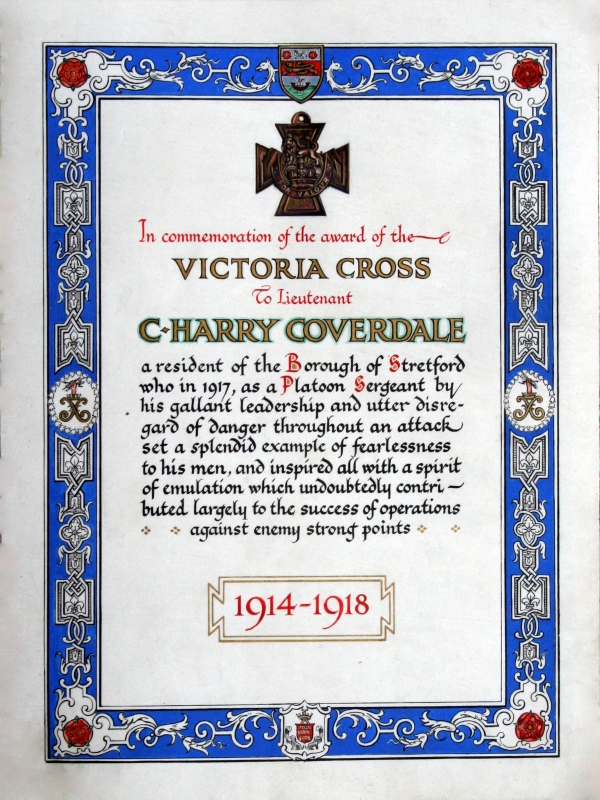 In commemoration of the award of the
VICTORIA CROSS
To Lieutenant
C·HARRY COVERDALE
a resident of the Borough of Stretford
who in 1917, as a Platoon Sergeant by
his gallant leadership and utter disre-
gard of danger throughout an attack
set a splendid example of fearlessness
to his men, and inspired all with a spirit
of emulation which undoubtedly contri-
buted largely to the success of operations
against enemy strong points
1914-1918